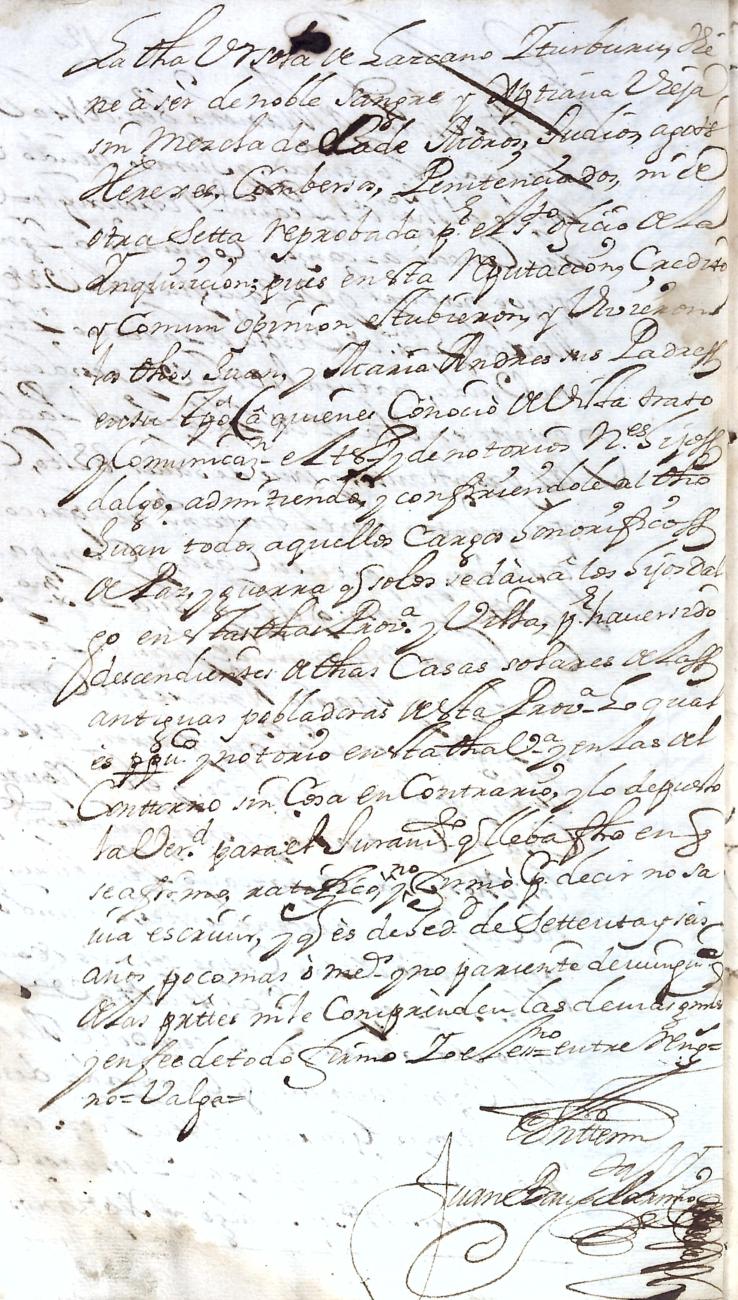 La dha Ursola de Lazcano Yturburu, Vie
ne à ser de noble sangre y Xptiana Vieja
sin mezcla de Moros, Judios, agotes
Hereges, Combersos, Penitenciados, ni de
otra Setta reprobada pr el Sto oficio de la
Inquisicion; pues en esta Reputacion, Credito
y Comun opinion estubieron, y Vivieron
los dhos Juan, y Maria Andres sus Padres
en su tpo (â quienes Conociò de Vista trato
y Comunicazn el to) y de notorios Nes hijos
dalgo, admitiendo, y confiriendole al dho
Juan todos aquellos Cargos honorificos
de Paz, y guerra q solos se dàn â los hijosdal
go en estas dhas Prova y Villa, pr haver sido
descendientes de dhas Casas solares de las
antiguas pobladoras de esta Prova Lo qual
es ppco y notorio en esta dha Va y en las del
Contorno sin Cosa en Contrario, y lo depuesto
la Verd para el Juramto q lleba fho en q
se afirmo, ratificò, y no firmò pr decir no sa
via escrivir, y q es de hed de Settenta y seis
años poco mas ò mes y no pariente de ningu
de las partes ni le Comprenden las demas
y en fee de todo firmo Yo el esno = entre Reng =
no = Valga =
Ante mi
Juan Bauptta